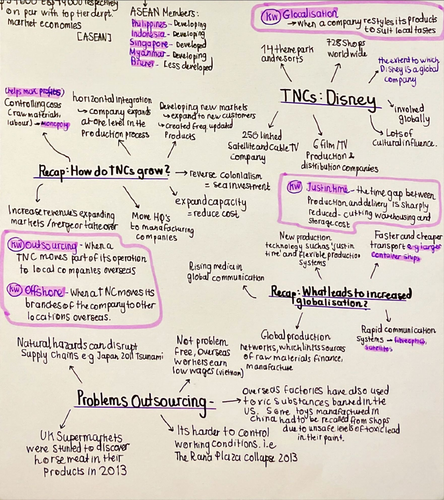 on par with top tier dev't
market economies
[ASEAN]
ASEAN Members:
Philippines - Developing
Indonesia - Developing
Singapore - Developed
Myanmar - Developing
Brunei - Less developed
KW Glocalisation
→ when a company restyles its products
to suit local tastes
14 theme park
and resorts
728 shops
worldwide
the extent to which
Disney is a global
company
TNCs: Disney
involved
globally
Lots of
cultural influence.
250 linked
Satellite and cable TV
company
6 film/TV
Production &
distribution companies
(helps max profits)
Controlling costs
(raw materials,
labour) → monopoly
horizontal integration
→ company expands
at one level in the
Production process
Developing new markets
→ expand to new customers
→ created freq. updated
Products
Recap: How do TNCs grow?
→ reverse colonialism
= sea investment
expand capacity
= reduce cost
Increase revenues expanding
markets / merge or take over
More HQ's
to manufacturing
companies
KW Just in time - the time gap between
Production and delivery is sharply
reduced - cutting warehousing and
storage cost
KW Outsourcing - When a
TNC moves part of its operation
to local companies overseas
KW Offshore - When a TNC moves its
branches of the company to other
locations overseas.
New production
technology such as 'just in
time' and flexible production
systems
Faster and cheaper
transport e.g larger
container ships
Rising media in
global communication
Recap: What leads to increased
globalisation?
Global production
networks, which links sources
of raw materials, finance,
manufacture
Rapid communication
systems -
satellites
Natural hazards can disrupt
Supply chains e.g Japan, 2011 Tsunami
Not problem
free, overseas
workers earn
low wages (Vietnam)
Problems Outsourcing -
→ overseas factories have also used
toxic substances banned in the
US. Some toys manufactured in
China had to be recalled from shops
due to unsafe levels of toxic lead
in their paint.
UK Supermarkets
were stunned to discover
horsemeat in their
Products in 2013
Its harder to control
working conditions. i.e
The Rana Plaza collapse 2013